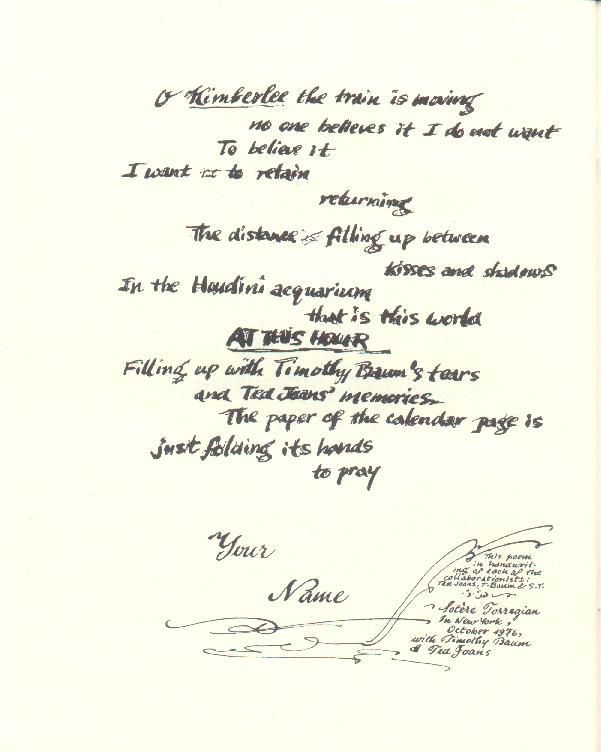 O Kimberlee the train is moving
no one believes it I do not want
To believe it
I want to retain
returning
The distance filling up between
kisses and shadows
In the Houdini acquarium
that is this world
AT THIS HOUR
Filling up with Timothy Baum's tears
and Ted Joans' memories
The paper of the calendar page is
just folding its hands
to pray
Your
Name
This poem
in handwrit-
ing of each of the
collaborationists:
Ted Joans, T. Baum & S.T.
Sotère Torregian
In New York,
October 1976,
with Timothy Baum
& Ted Joans